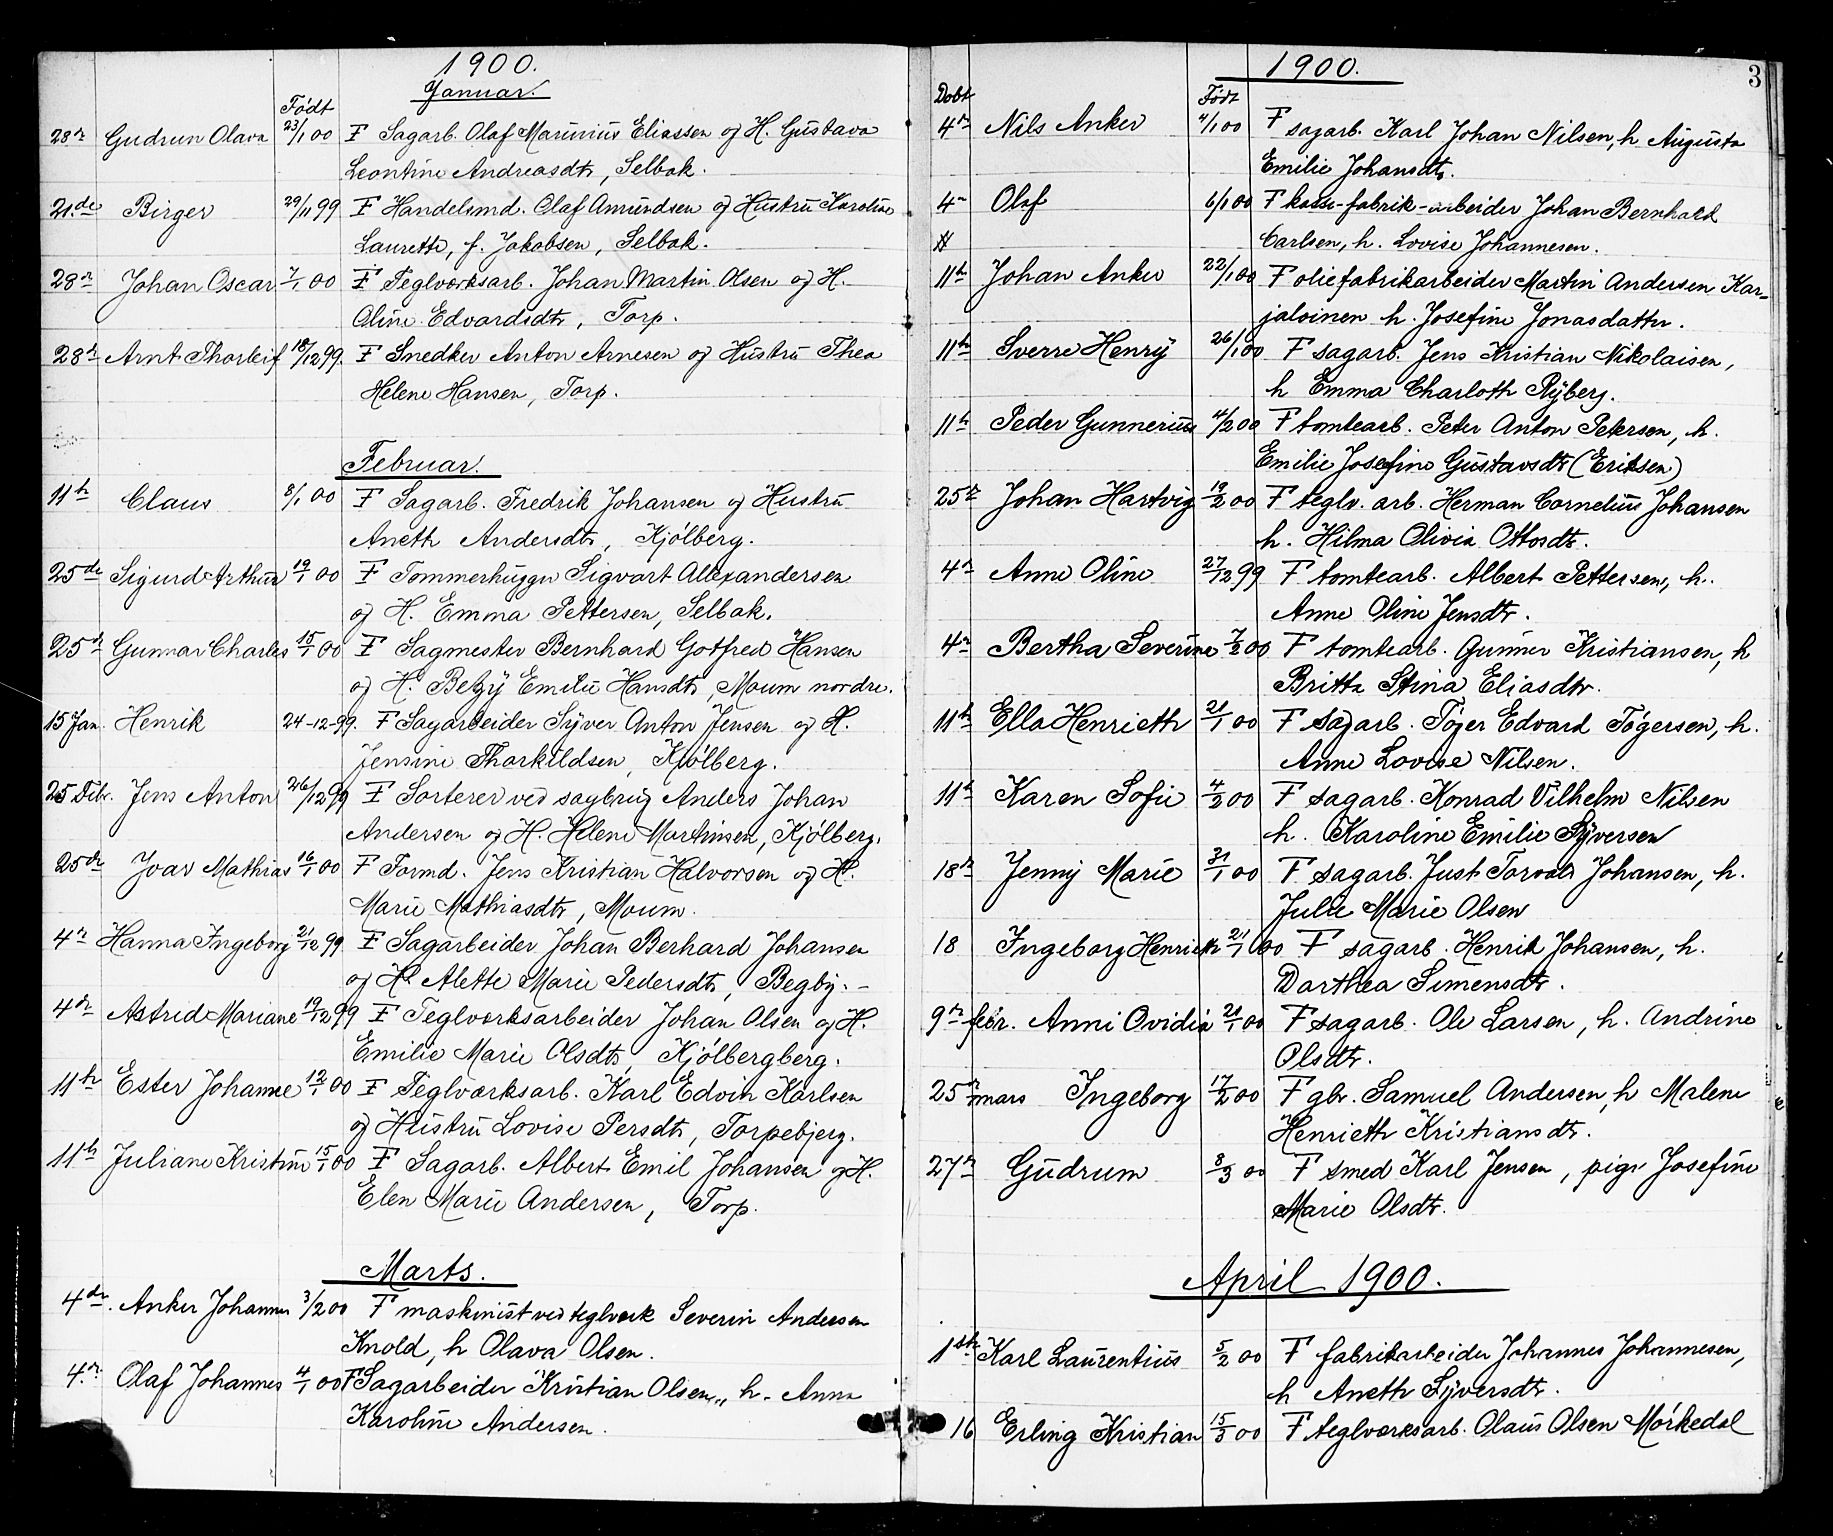 1900.
Januar.
Født
28de Gudrun Olava 23/1 00 F Sagarb. Olaf Marinius Eliassen og H. Gustava
Leontine Andreasdtr, Selbak.
21.de Birger 29/11 99 F Handelsmd. Olaf Amundsen og Hustru Karoline
Laurette, f. Jakobsen, Selbak.
28de Johan Oscar 7/1 00 F Teglværksarb. Johan Martin Olsen og H.
Oline Edvardsdtr, Torp.
28de Arnt Thorleif 18/12 99. F Snedker Anton Arnesen og Hustru Thea
Helene Hansen, Torp.
Februar.
11te Claus 8/1 00 F Sagarb. Fredrik Johansen og Hustru
Aneth Andersdtr, Kjølberg.
25de Sigurd Arthur 19/1 00 F Tømmerhugger Sigvart Alexandersen
og H. Emma Pettersen, Selbak.
25de Gunnar Charles 15/1 00 F Sagmester Bernhard Gotfred Hansen
og H. Betzy Emilie Hansdtr, Moum nordre.
15 Jan. Henrik 24-12-99. F Sagarbeider Syver Anton Jensen og H.
Jensine Thorkildsen, Kjølberg.
25 Febr. Jens Anton 26/12 99 F Sorterer ved sagbrug Anders Johan
Andersen og H. Helene Martinsen, Kjølberg.
25de Ivar Mathias 16/1 00 F Formd. Jens Kristian Halvorsen og H.
Marie Mathiasdtr, Moum.
4de Hanna Ingeborg 21/12 99. F Sagarbeider Johan Berhard Johansen
og H. Alette Marie Pedersdtr, Begby. -
4de Astrid Mariane 19/12 99 F Teglværksarbeider Johan Olsen og H.
Emilie Marie Olsdtr, Kjølbergberg.
11te Ester Johanne 12/1 00 F Teglværksarb. Karl Edvin Karlsen
og Hustru Lovise Persdtr, Torpebjerg.
11te Juliane Kristine 15/1 00 F Sagarb. Albert Emil Johansen og H.
Elen Marie Andersen, Torp.
Marts.
4de. Anker Johannes 3/2 00 F maskinist ved teglværk Severin Andersen
Knold, h Olava Olsen.
4de. Olaf Johannes 4/1 00 F Sagarbeider Kristian Olsen, h. Anna
Karoline Andersen.
1900. 3
Døbt Født
4de Nils Anker 4/1 00 F sagarb. Karl Johan Nilsen, h Augusta
Emilie Johansdtr.
4de Olaf 6/1 00 F kasse-fabrik-arbeider Johan Bernhard
Carlsen, h. Lovise Johannesen.
11te Johan Anker 22/1 00 F oliefabrikarbeider Martin Andersen Kar-
jaloinen h. Josefine Jonasdatter.
11te Sverre Henry 26/1 00 F sagarb. Jens Kristian Nikolaisen,
h Emma Charloth Ryberg.
11te Peder Gunnerius 4/2 00 F tomtearb. Peter Anton Petersen, h.
Emilie Josefine Gustavsdtr (Eriksen)
25de Johan Hartvig 19/2 00 F teglv. arb. Herman Cornelius Johansen
h. Hilma Olivia Ottosdtr.
4de Anne Oline 27/12 99 F tomtearb. Albert Pettersen, h.
Anne Oline Jensdtr.
4de Bertha Severine 7/2 00 F tomtearb. Gunner Kristiansen, h
Britta Stina Eliasdtr.
11te Ella Henrieth 21/1 00 F sagarb. Tøger Edvard Tøgersen, h.
Anne Lovise Nilsen.
11te Karen Sofie 4/2 00 F sagarb. Konrad Vilhelm Nilsen
h. Karoline Emilie Syversen
18de Jenny Marie 31/1 00 F sagarb. Just Torvald Johansen, h.
Julie Marie Olsen
18 Ingeborg Henriette 21/1 00 F sagarb. Henrik Johansen, h.
Dorthea Simensdtr.
9de febr. Anni Ovidia 21/1 00 F sagarb. Ole Larsen, h. Andrine
Olsdtr.
25de mars Ingeborg 17/2 00 F gbr. Samuel Andersen, h Malene
Henrieth Kristiansdtr.
27de Gudrum 8/3 00 F smed Karl Jensen, pige Josefine
Marie Olsdtr.
April 1900.
1ste Karl Laurentius 5/2 00 F fabrikarbeider Johannes Johannesen,
h Aneth Syversdtr.
16 Erling Kristian 15/3 00 F teglværksarb. Olaus Olsen Mørkedal